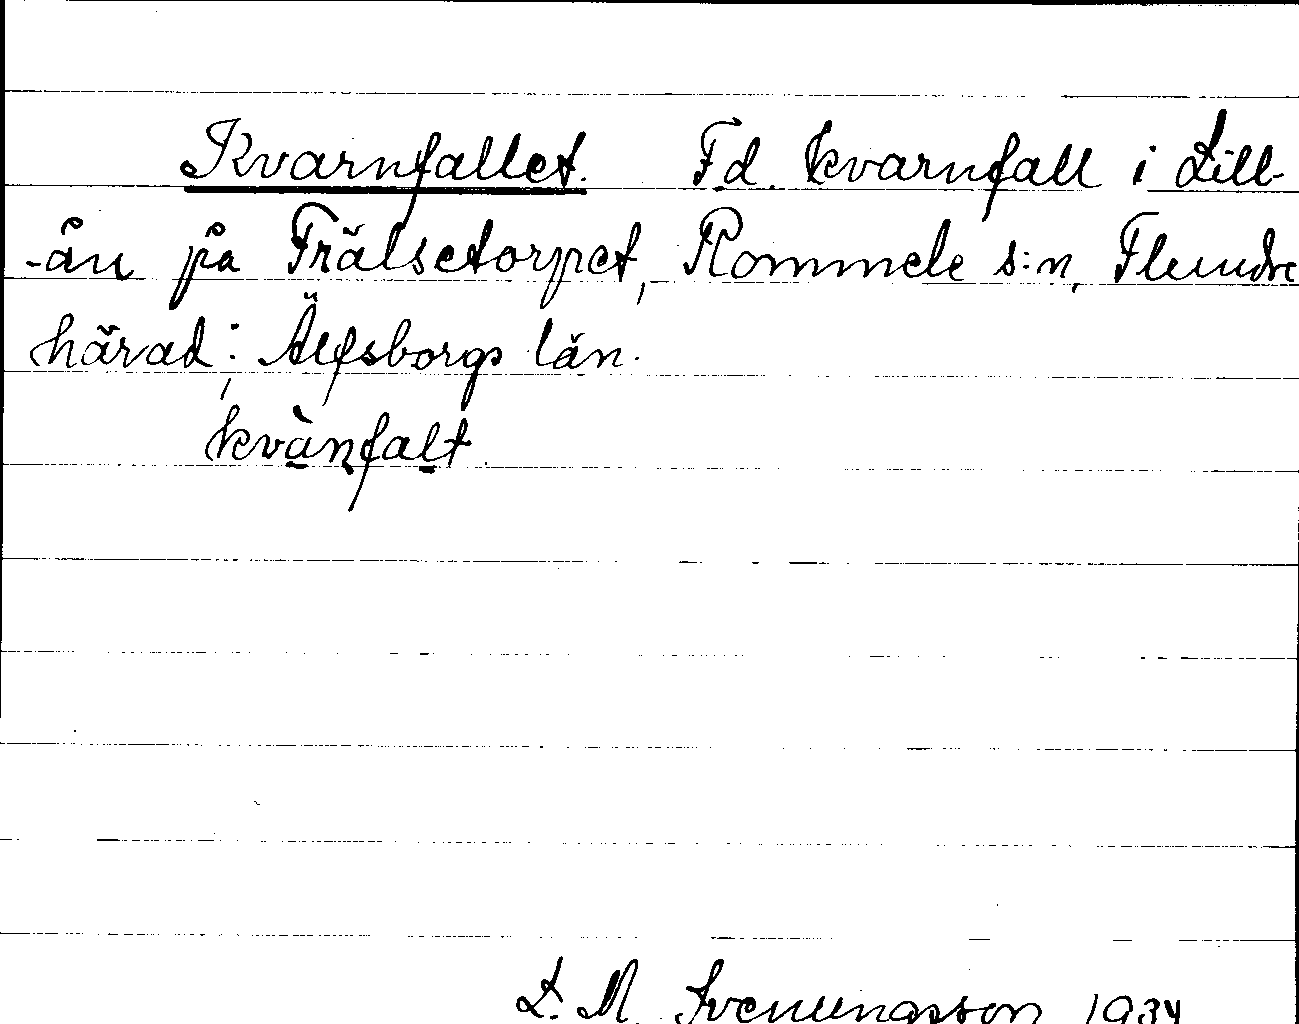 Kvarnfallet. F.d. kvarnfall i Lill-
-ån på Frälsetorpet, Rommele s:n, Flundre
härad; Älfsborgs län.
kvànfalt
L. M. Svenungsson 1934